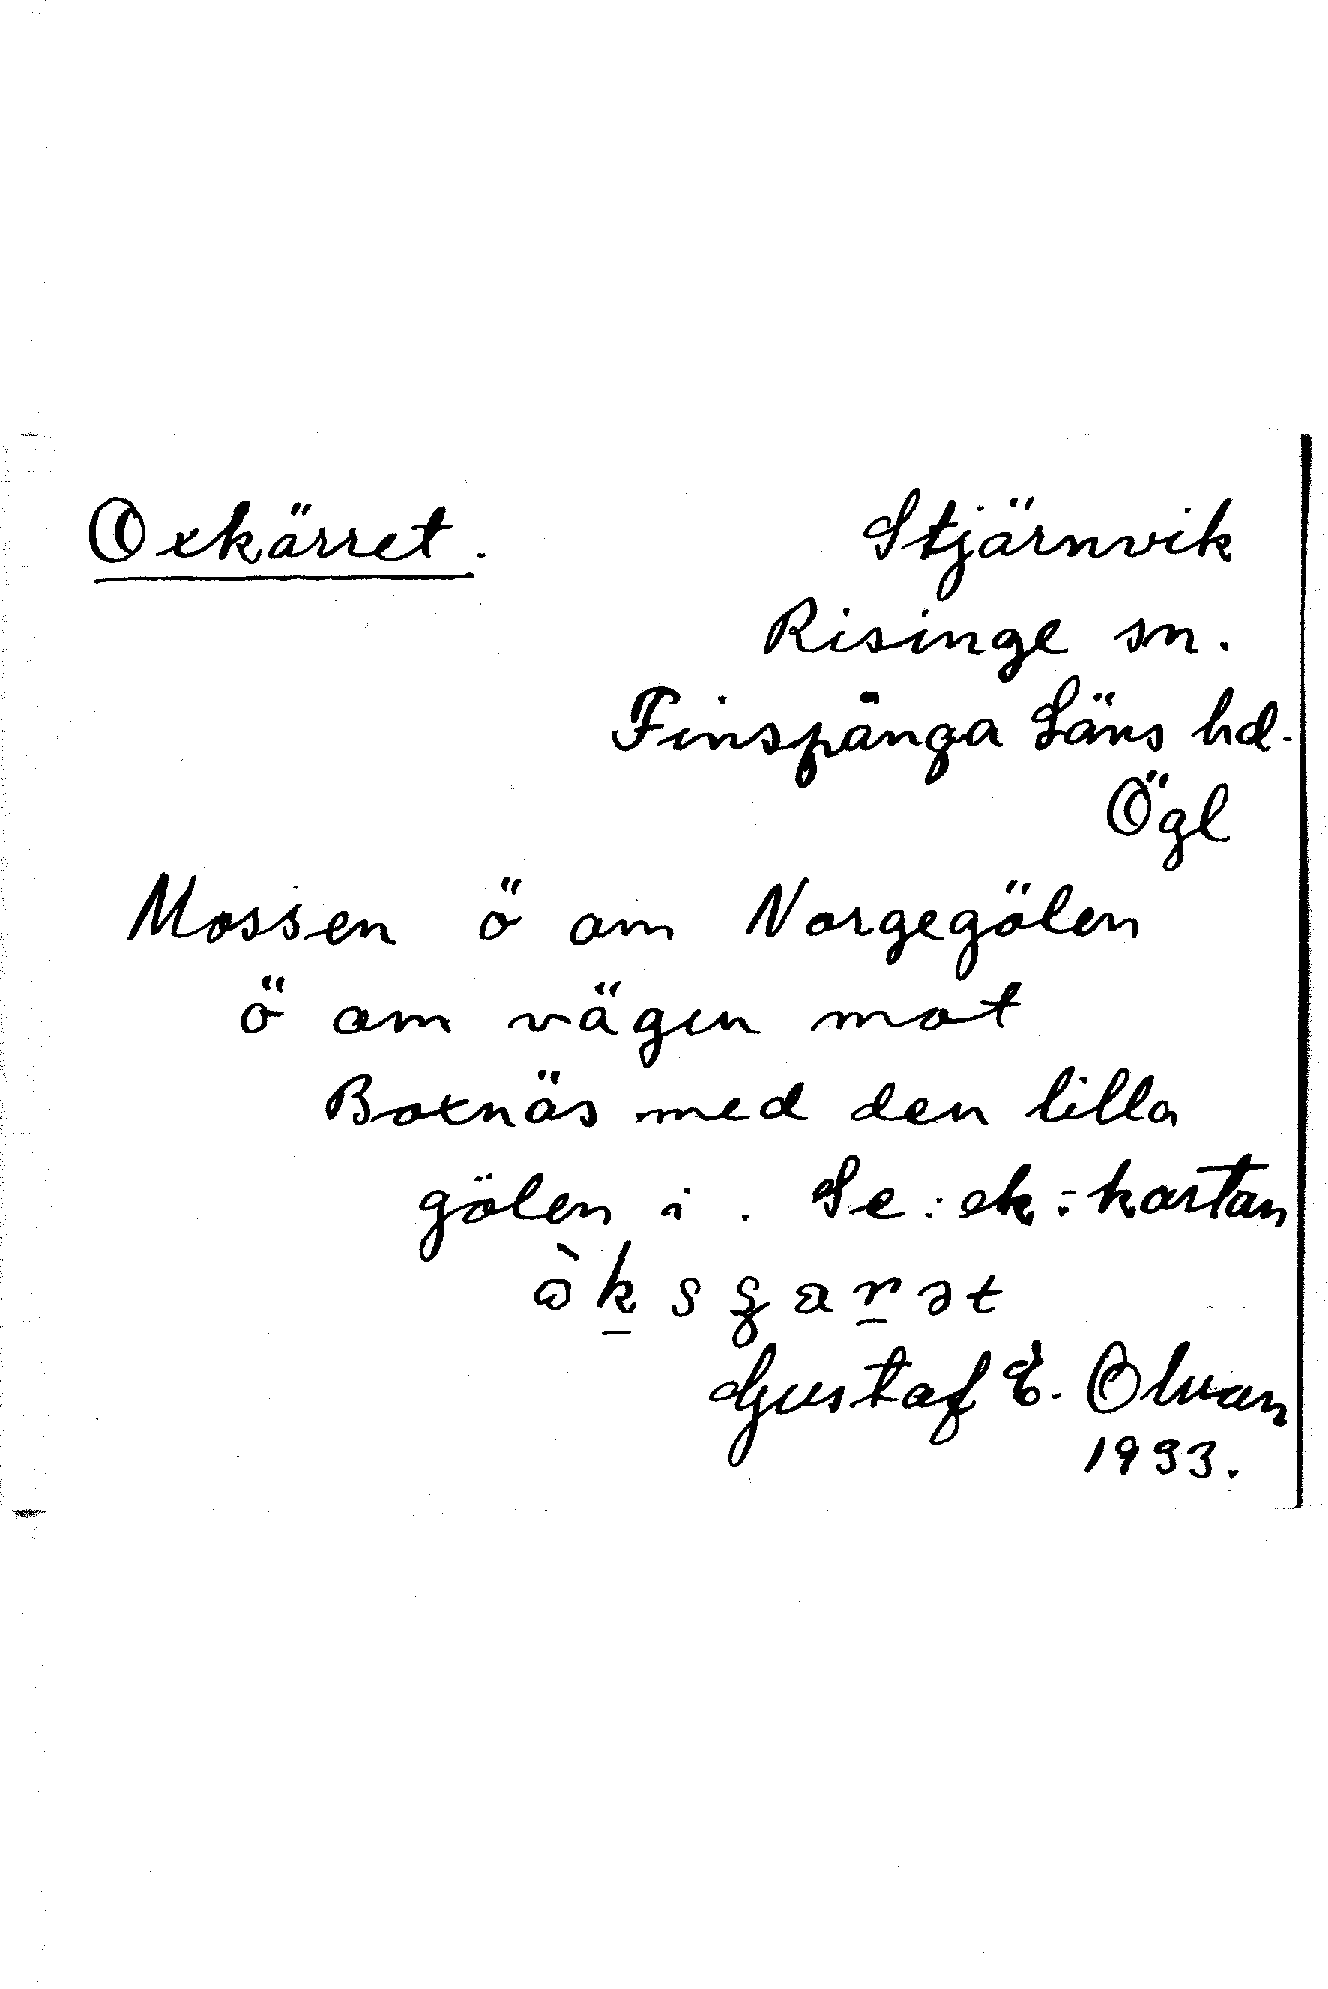 Oxkärret.
Stjärnvik
Risinge sn.
Finspånga Läns hd.
Ögl
Mossen ö om Norgegölen
ö om vägen mot
Boxnäs med den lilla
gölen i. Se: ek:-kartan
Gustaf E. Olvan
1933.